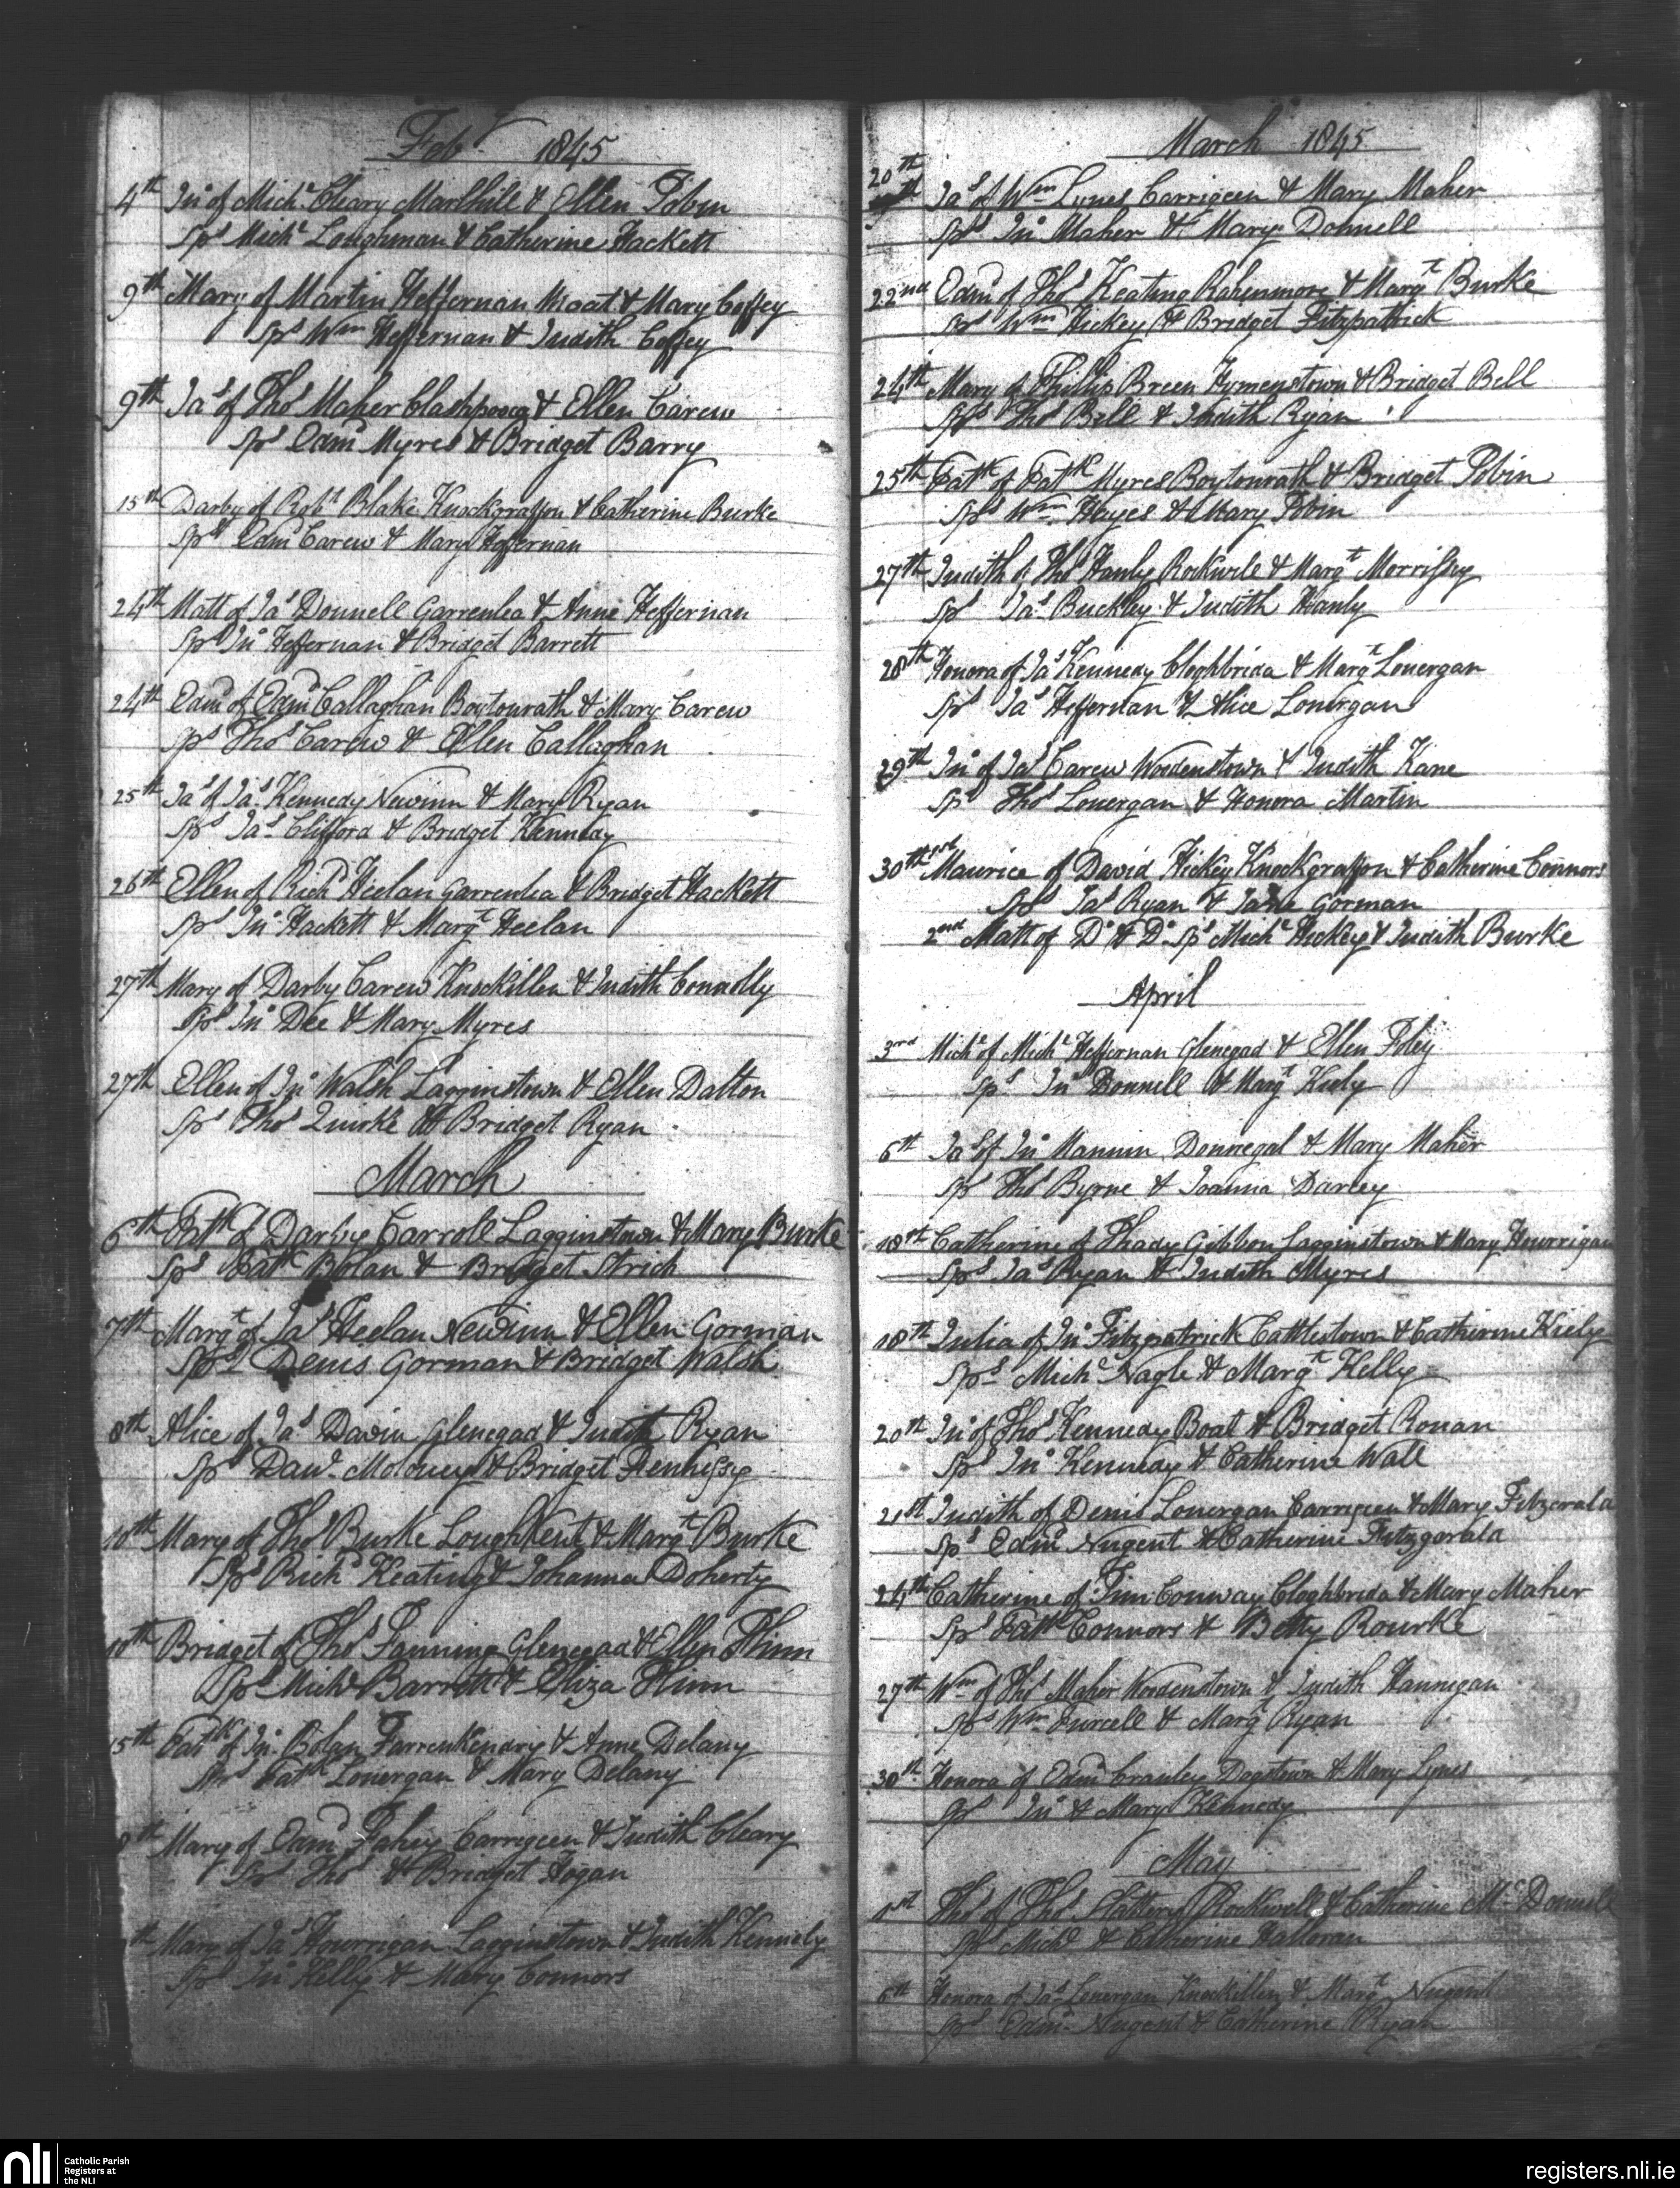 Feby 1845
4th Jno of Michl Cleary Marlhill & Ellen Tobin
Sps Michl Loughman & Catherine Hackett
9th Mary of Martin Heffernan Moat & Mary Coffey
Sps Wm Heffernan & Judith Coffey
9th Jas of Thos Maher & Ellen Carew
Sps Edmd Myres & Bridget Barry
15th Darby of Robt Blake Knockgraffon & Catherine Burke
Sps Edmd Carew & Mary Heffernan
24th Matt of Jas Donnell Garrenlea & Anne Heffernan
Sps Jno Heffernan & Bridget Barrett
24th Edmd of Edmd Callaghan Boytonrath & Mary Carew
Sps Thos Carew & Ellen Callaghan
25th Jas of Jas Kennedy Newinn & Mary Ryan
Sps Jas Clifford & Bridget Kennedy
26th Ellen of Richd Heelan Garrenlea & Bridget Hackett
Sps Jno Hackett & Margt Heelan
27th Mary of Darby Carew Knockillen & Judith Connolly
Sps Jno Dee & Mary Myres
27th Ellen of Jno Walsh Lagginstown & Ellen Dalton
Sps Thos Quirke & Bridget Ryan
March
6th Patk of Darby Carroll Lagginstown & Mary Burke
Sps Patk Bolan & Bridget Strich
7th Margt of Jas Heelan Newinn & Ellen Gorman
Sps Denis Gorman & Bridget Walsh
8th Alice of Jas Davin Glenegad & Judith Ryan
Sps Davd Moloney & Bridget Hennessy
10th Mary of Thos Burke Loughkent & Margt Burke
Sps Richd Keating & Johanna Doherty
10th Bridget of Thos Fanning Glenegad & Ellen Flinn
Sps Michl Barrett & Eliza Flinn
15th Patk of Jno Bolan Farrenkendry & Anne Delany
Sps Patk Lonergan & Mary Delany
th Mary of Edmd Fahey Carrigeen & Judith Cleary
Sps Thos & Bridget Hogan
th Mary of Jas Hourrigan Lagginstown & Judith Kennely
Sps Jno Kelly & Mary Connors
March 1845
20th Jas of Wm Lynes Carrigeen & Mary Maher
Sps Jno Maher & Mary Donnell
22nd Edmd of Thos Keating Rahenmore & Margt Burke
Sps Wm Hickey & Bridget Fitzpatrick
24th Mary of Phillip Breen Hymenstown & Bridget Bell
Sps Thos Bell & Judith Ryan
25th Patk of Patk Myres Boytonrath & Bridget Tobin
Sps Wm Hayes & Mary Tobin
27th Judith of Thos Hanly Rockwell & Margt Morrissey
Sps Jas Buckley & Judith Hanly
28th Honora of Jas Kennedy Cloghbrida & Margt Lonergan
Sps Jas Heffernan & Alice Lonergan
29th Jno of Jas Carew Woodenstown & Judith Kane
Sps Thos Lonergan & Honora Martin
30th 1st Maurice of David Hickey Knockgraffon & Catherine Connors
Sps Jas Ryan & Jane Gorman
2nd Matt of Do & Do Sps Michl Hickey & Judith Burke
April
3rd Michl of Michl Heffernan Glenegad & Ellen Foley
Sps Jno Donnell & Margt Kiely
6th Jas of Jno Mannin Donnegal & Mary Maher
Sps Thos Byrne & Joanna Darcey
18th Catherine of Thady Gibbon Lagginstown & Mary Hourrigan
Sps Jas Ryan & Judith Myres
18th Julia of Jno Fitzpatrick Cattlestown & Catherine Kiely
Sps Michl Nagle & Margt Kelly
20th Jno of Thos Kennedy Boat & Bridget Ronan
Sps Jno Kennedy & Catherine Wall
21st Judith of Denis Lonergan Carrigeen & Mary Fitzgerald
Sps Edmd Nugent & Catherine Fitzgerald
24th Catherine of Tim Conway Cloghbrida & Mary Maher
Sps Patk Connors & Betty Rourke
27th Wm of Thos Maher Woodenstown & Judith Hannigan
Sps Wm Purcell & Margt Ryan
30th Honora of Edmd Cranley Dogstown & Mary Lynes
Sps Jno & Mary Kennedy
May
1st Thos of Thos Slattery Rockwell & Catherine McDonnell
Sps Michl & Catherine Halloran
6th Honora of Jas Lonergan Knockillen & Margt Nugent
Sps Edmd Nugent & Catherine Ryan
nli
Catholic Parish
Registers at
the NLI
registers.nli.ie